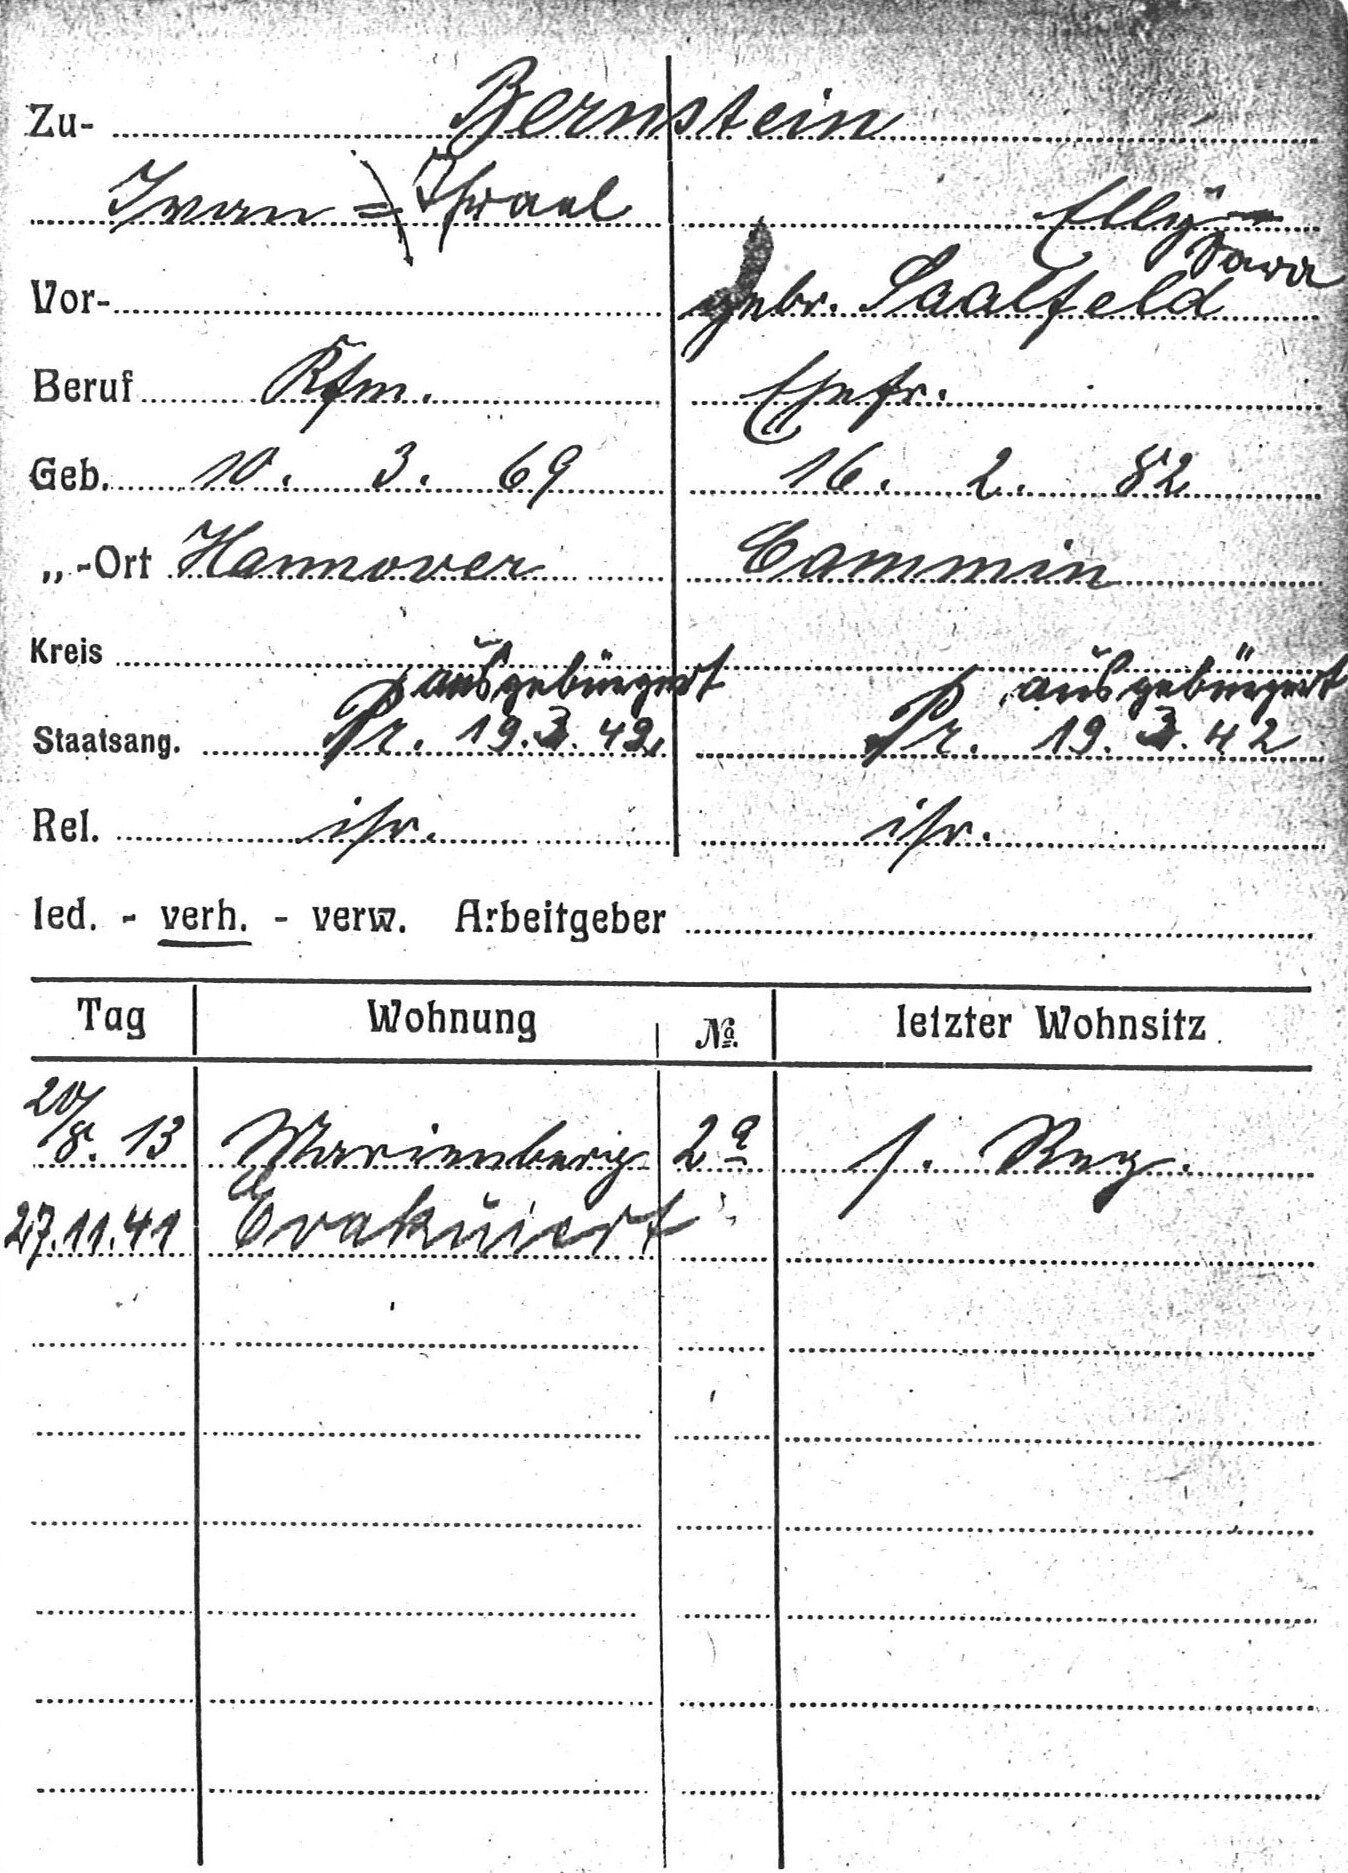 Zu- Bernstein
Ivan = Israel Elly =
Sara
Vor- gebr. Saalfeld
Beruf Kfm. Ehefr.
Geb. 10. 3. 69 16. 2. 82
„-Ort Hannover Cammin
Kreis
ausgebürgert ausgebürgert
Staatsang. Pr. 19.3.42. Pr. 19.3.42
Rel. isr. isr.
led. - verh. - verw. Arbeitgeber
Tag Wohnung No. letzter Wohnsitz
20/8. 13 Marienberg 2a s. Reg.
27.11.41 Evakuiert